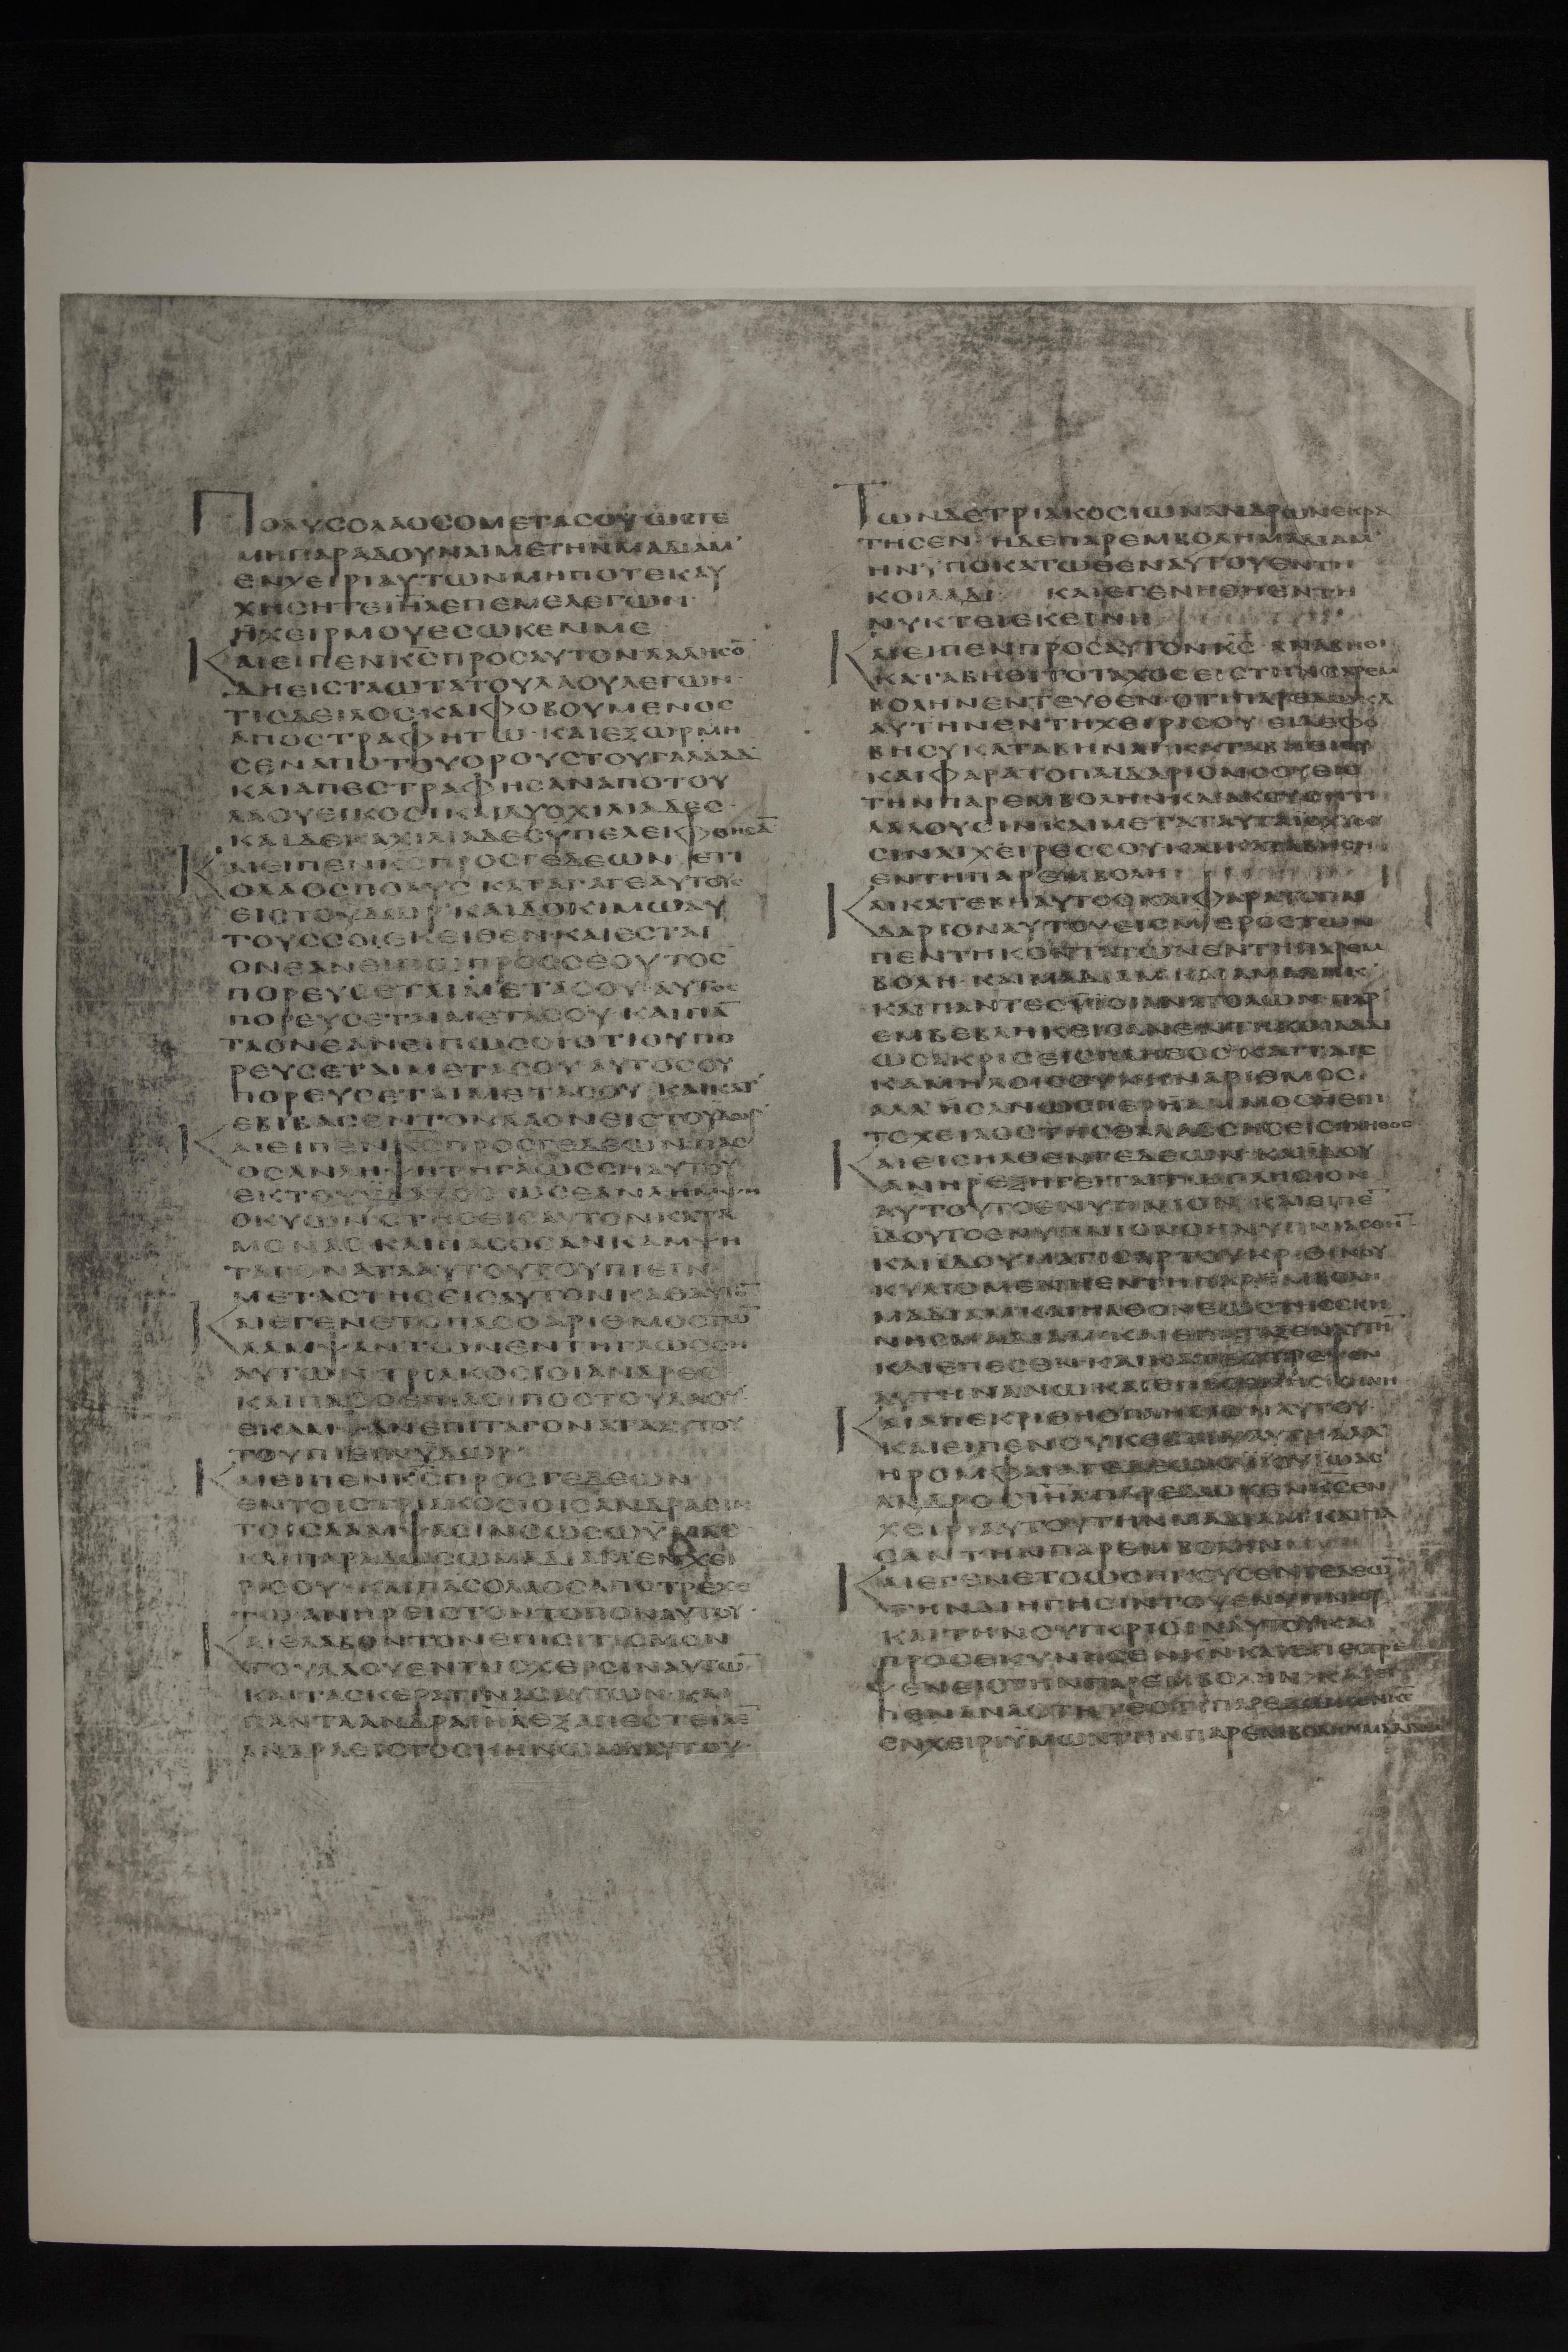 ΠΟΛΥΣΟΛΑΟΣΟΜΕΤΑΣΟΥΩΣΤΕ
ΜΗΠΑΡΑΔΟΥΝΑΙΜΕΤΗΝΜΑΔΙΑΜ
ΕΝΧΕΙΡΙΑΥΤΩΝΜΗΠΟΤΕΚΑΥ
ΧΗΣΗΤΕΙΗΛΕΠΕΜΕΛΕΓΩΝ
ΗΧΕΙΡΜΟΥΕΣΩΚΕΝΜΕ
ΚΑΙΕΙΠΕΝΚΣΠΡΟΣΑΥΤΟΝΛΑΛΗΣΟ
ΔΗΕΙΣΤΑΩΤΑΤΟΥΛΑΟΥΛΕΓΩΝ
ΤΙΣΔΕΙΛΟΣΚΑΙΦΟΒΟΥΜΕΝΟΣ
ΑΠΟΣΤΡΑΦΗΤΩ·ΚΑΙΕΞΩΡΜΗ
ΣΕΝΑΠΟΤΟΥΟΡΟΥΣΤΟΥΓΑΛΑΑΔ
ΚΑΙΑΠΕΣΤΡΑΦΗΣΑΝΑΠΟΤΟΥ
ΛΑΟΥΕΙΚΟΣΙΚΑΙΔΥΟΧΙΛΙΑΔΕΣ
ΚΑΙΔΕΚΑΧΙΛΙΑΔΕΣΥΠΕΛΕΙΦΘΗΣΑ
ΚΑΙΕΙΠΕΝΚΣΠΡΟΣΓΕΔΕΩΝΕΤΙ
ΟΛΑΟΣΠΟΛΥΣ·ΚΑΤΑΓΑΓΕΑΥΤΟΥΣ
ΕΙΣΤΟΥΔΩΡΚΑΙΔΟΚΙΜΩΑΥ
ΤΟΥΣΣΟΙΕΚΕΙΘΕΝ·ΚΑΙΕΣΤΑΙ
ΟΝΕΑΝΕΙΠΩΠΡΟΣΣΕΟΥΤΟΣ
ΠΟΡΕΥΣΕΤΑΙΜΕΤΑΣΟΥΑΥΤΟΣ
ΠΟΡΕΥΣΕΤΑΙΜΕΤΑΣΟΥ·ΚΑΙΠΑ
ΤΑΟΝΕΑΝΕΙΠΩΣΟΙΟΤΙΟΥΠΟ
ΡΕΥΣΕΤΑΙΜΕΤΑΣΟΥΑΥΤΟΣΟΥ
ΠΟΡΕΥΣΕΤΑΙΜΕΤΑΣΟΥ·ΚΑΙΚΑΤ
ΕΒΙΒΑΣΕΝΤΟΝΛΑΟΝΕΙΣΤΟΥΔΩΡ
ΚΑΙΕΙΠΕΝΚΣΠΡΟΣΓΕΔΕΩΝΠΑΣ
ΟΣΑΝΛΑΨΗΤΗΓΛΩΣΣΗΑΥΤΟΥ
ΕΚΤΟΥΥΔΑΤΟΣΩΣΕΑΝΛΑΨΗ
ΟΚΥΩΝΣΤΗΣΕΙΣΑΥΤΟΝΚΑΤΑ
ΜΟΝΑΣ·ΚΑΙΠΑΣΟΣΑΝΚΑΜΨΗ
ΤΑΓΟΝΑΤΑΑΥΤΟΥΤΟΥΠΙΕΙΝ
ΜΕΤΑΣΤΗΣΕΙΣΑΥΤΟΝΚΑΘΑΥΤΟ
ΚΑΙΕΓΕΝΕΤΟΠΑΣΟΑΡΙΘΜΟΣΤΩ
ΛΑΜΨΑΝΤΩΝΕΝΤΗΓΛΩΣΣΗ
ΑΥΤΩΝΤΡΙΑΚΟΣΙΟΙΑΝΔΡΕΣ
ΚΑΙΠΑΣΟΕΠΙΛΟΙΠΟΣΤΟΥΛΑΟΥ
ΕΚΑΜΨΑΝΕΠΙΤΑΓΟΝΑΤΑΑΥΤΟΥ
ΤΟΥΠΙΕΙΝΥΔΩΡ
ΚΑΙΕΙΠΕΝΚΣΠΡΟΣΓΕΔΕΩΝ
ΕΝΤΟΙΣΤΡΙΑΚΟΣΙΟΙΣΑΝΔΡΑΣΙΝ
ΤΟΙΣΛΑΜΨΑΣΙΝΣΩΣΩΥΜΑΣ
ΚΑΙΠΑΡΑΔΩΣΩΜΑΔΙΑΜΕΝΧΕΙ
ΡΙΣΟΥ·ΚΑΙΠΑΣΟΛΑΟΣΑΠΟΤΡΕΧΕ
ΤΩΑΝΗΡΕΙΣΤΟΝΤΟΠΟΝΑΥΤΟΥ
ΚΑΙΕΛΑΒΟΝΤΟΝΕΠΙΣΙΤΙΣΜΟΝ
ΤΟΥΛΑΟΥΕΝΤΑΙΣΧΕΡΣΙΝΑΥΤΩ
ΚΑΙΤΑΣΚΕΡΑΤΙΝΑΣΑΥΤΩΝ·ΚΑΙ
ΠΑΝΤΑΑΝΔΡΑΙΗΛΕΞΑΠΕΣΤΕΙΛΕ
ΑΝΔΡΑΕΙΣΤΟΣΚΗΝΩΜΑΑΥΤΟΥ
ΤΩΝΔΕΤΡΙΑΚΟΣΙΩΝΑΝΔΡΩΝΕΚΡΑ
ΤΗΣΕΝ·ΗΔΕΠΑΡΕΜΒΟΛΗΜΑΔΙΑΜ
ΗΝΥΠΟΚΑΤΩΘΕΝΑΥΤΟΥΕΝΤΗ
ΚΟΙΛΑΔΙ ΚΑΙΕΓΕΝΗΘΗΕΝΤΗ
ΝΥΚΤΕΙΕΚΕΙΝΗ
ΚΑΙΕΙΠΕΝΠΡΟΣΑΥΤΟΝΚΣ·ΑΝΑΣΤΗΘΙ
ΚΑΤΑΒΗΘΙΤΟΤΑΧΟΣΕΙΣΤΗΝΠΑΡΕΜ
ΒΟΛΗΝΕΝΤΕΥΘΕΝΟΤΙΠΑΡΕΔΩΚΑ
ΑΥΤΗΝΕΝΤΗΧΕΙΡΙΣΟΥ·ΕΙΔΕΦΟ
ΒΗΣΥΚΑΤΑΒΗΝΑΙΚΑΤΑΒΗΘΙΣΥ
ΚΑΙΦΑΡΑΤΟΠΑΙΔΑΡΙΟΝΣΟΥΕΙΣ
ΤΗΝΠΑΡΕΜΒΟΛΗΝΚΑΙΑΚΟΥΣΗΤΙ
ΛΑΛΟΥΣΙΝΚΑΙΜΕΤΑΤΑΥΤΑΙΣΧΥΣΟΥ
ΣΙΝΑΙΧΕΙΡΕΣΣΟΥΚΑΙΚΑΤΑΒΗΣΗ
ΕΝΤΗΠΑΡΕΜΒΟΛΗ
ΚΑΙΚΑΤΕΒΗΑΥΤΟΣΚΑΙΦΑΡΑΤΟΠΑΙ
ΔΑΡΙΟΝΑΥΤΟΥΕΙΣΜΕΡΟΣΤΩΝ
ΠΕΝΤΗΚΟΝΤΑΤΩΝΕΝΤΗΠΑΡΕΜ
ΒΟΛΗ·ΚΑΙΜΑΔΙΑΜΚΑΙΑΜΑΛΗΚ
ΚΑΙΠΑΝΤΕΣΥΙΟΙΑΝΑΤΟΛΩΝΠΑΡ
ΕΜΒΕΒΛΗΚΕΙΣΑΝΕΝΤΗΚΟΙΛΑΔΙ
ΩΣΑΚΡΙΣΕΙΣΠΛΗΘΟΣΚΑΙΤΑΙΣ
ΚΑΜΗΛΟΙΣΟΥΚΗΝΑΡΙΘΜΟΣ
ΑΛΛΗΣΑΝΩΣΠΕΡΗΑΜΜΟΣΗΕΠΙ
ΤΟΧΕΙΛΟΣΤΗΣΘΑΛΑΣΣΗΣΕΙΣΠΛΗΘΟΣ
ΚΑΙΕΙΣΗΛΘΕΝΓΕΔΕΩΝΚΑΙΙΔΟΥ
ΑΝΗΡΕΞΗΓΕΙΤΑΙΤΩΠΛΗΣΙΟΝ
ΑΥΤΟΥΤΟΕΝΥΠΝΙΟΝ·ΚΑΙΕΙΠΕ
ΙΔΟΥΤΟΕΝΥΠΝΙΟΝΟΗΝΥΠΝΙΑΣΘΗ
ΚΑΙΙΔΟΥΜΑΓΙΣΑΡΤΟΥΚΡΙΘΙΝΟΥ
ΚΥΛΙΟΜΕΝΗΕΝΤΗΠΑΡΕΜΒΟΛΗ
ΜΑΔΙΑΜΚΑΙΗΛΘΕΝΕΩΣΤΗΣΣΚΗ
ΝΗΣΜΑΔΙΑΜ·ΚΑΙΕΠΑΤΑΞΕΝΑΥΤΗ
ΚΑΙΕΠΕΣΕΝ·ΚΑΙΚΑΤΕΣΤΡΕΨΕΝ
ΚΑΙΑΠΕΚΡΙΘΗΟΠΛΗΣΙΟΝΑΥΤΟΥ
ΚΑΙΕΙΠΕΝΟΥΚΕΣΤΙΝΑΥΤΗΑΛΛ
ΗΡΟΜΦΑΙΑΓΕΔΕΩΝΥΙΟΥΙΩΑΣ
ΑΝΔΡΟΣΙΗΛΠΑΡΕΔΩΚΕΝΚΣΕΝ
ΧΕΙΡΙΑΥΤΟΥΤΗΝΜΑΔΙΑΜΚΑΙΠΑ
ΣΑΝΤΗΝΠΑΡΕΜΒΟΛΗΝ
ΚΑΙΕΓΕΝΕΤΟΩΣΗΚΟΥΣΕΝΓΕΔΕΩ
ΤΗΝΔΙΗΓΗΣΙΝΤΟΥΕΝΥΠΝΙΟΥ
ΚΑΙΤΗΝΣΥΓΚΡΙΣΙΝΑΥΤΟΥΚΑΙ
ΠΡΟΣΕΚΥΝΗΣΕΝΚΝΚΑΙΕΠΕΣΤΡΕ
ΨΕΝΕΙΣΤΗΝΠΑΡΕΜΒΟΛΗΝΙΗΛ·ΚΑΙΕΙ
ΠΕΝΑΝΑΣΤΗΤΕΟΤΙΠΑΡΕΔΩΚΕΝΚΣ
ΕΝΧΕΙΡΙΥΜΩΝΤΗΝΠΑΡΕΜΒΟΛΗΝΜΑΔΙΑΜ